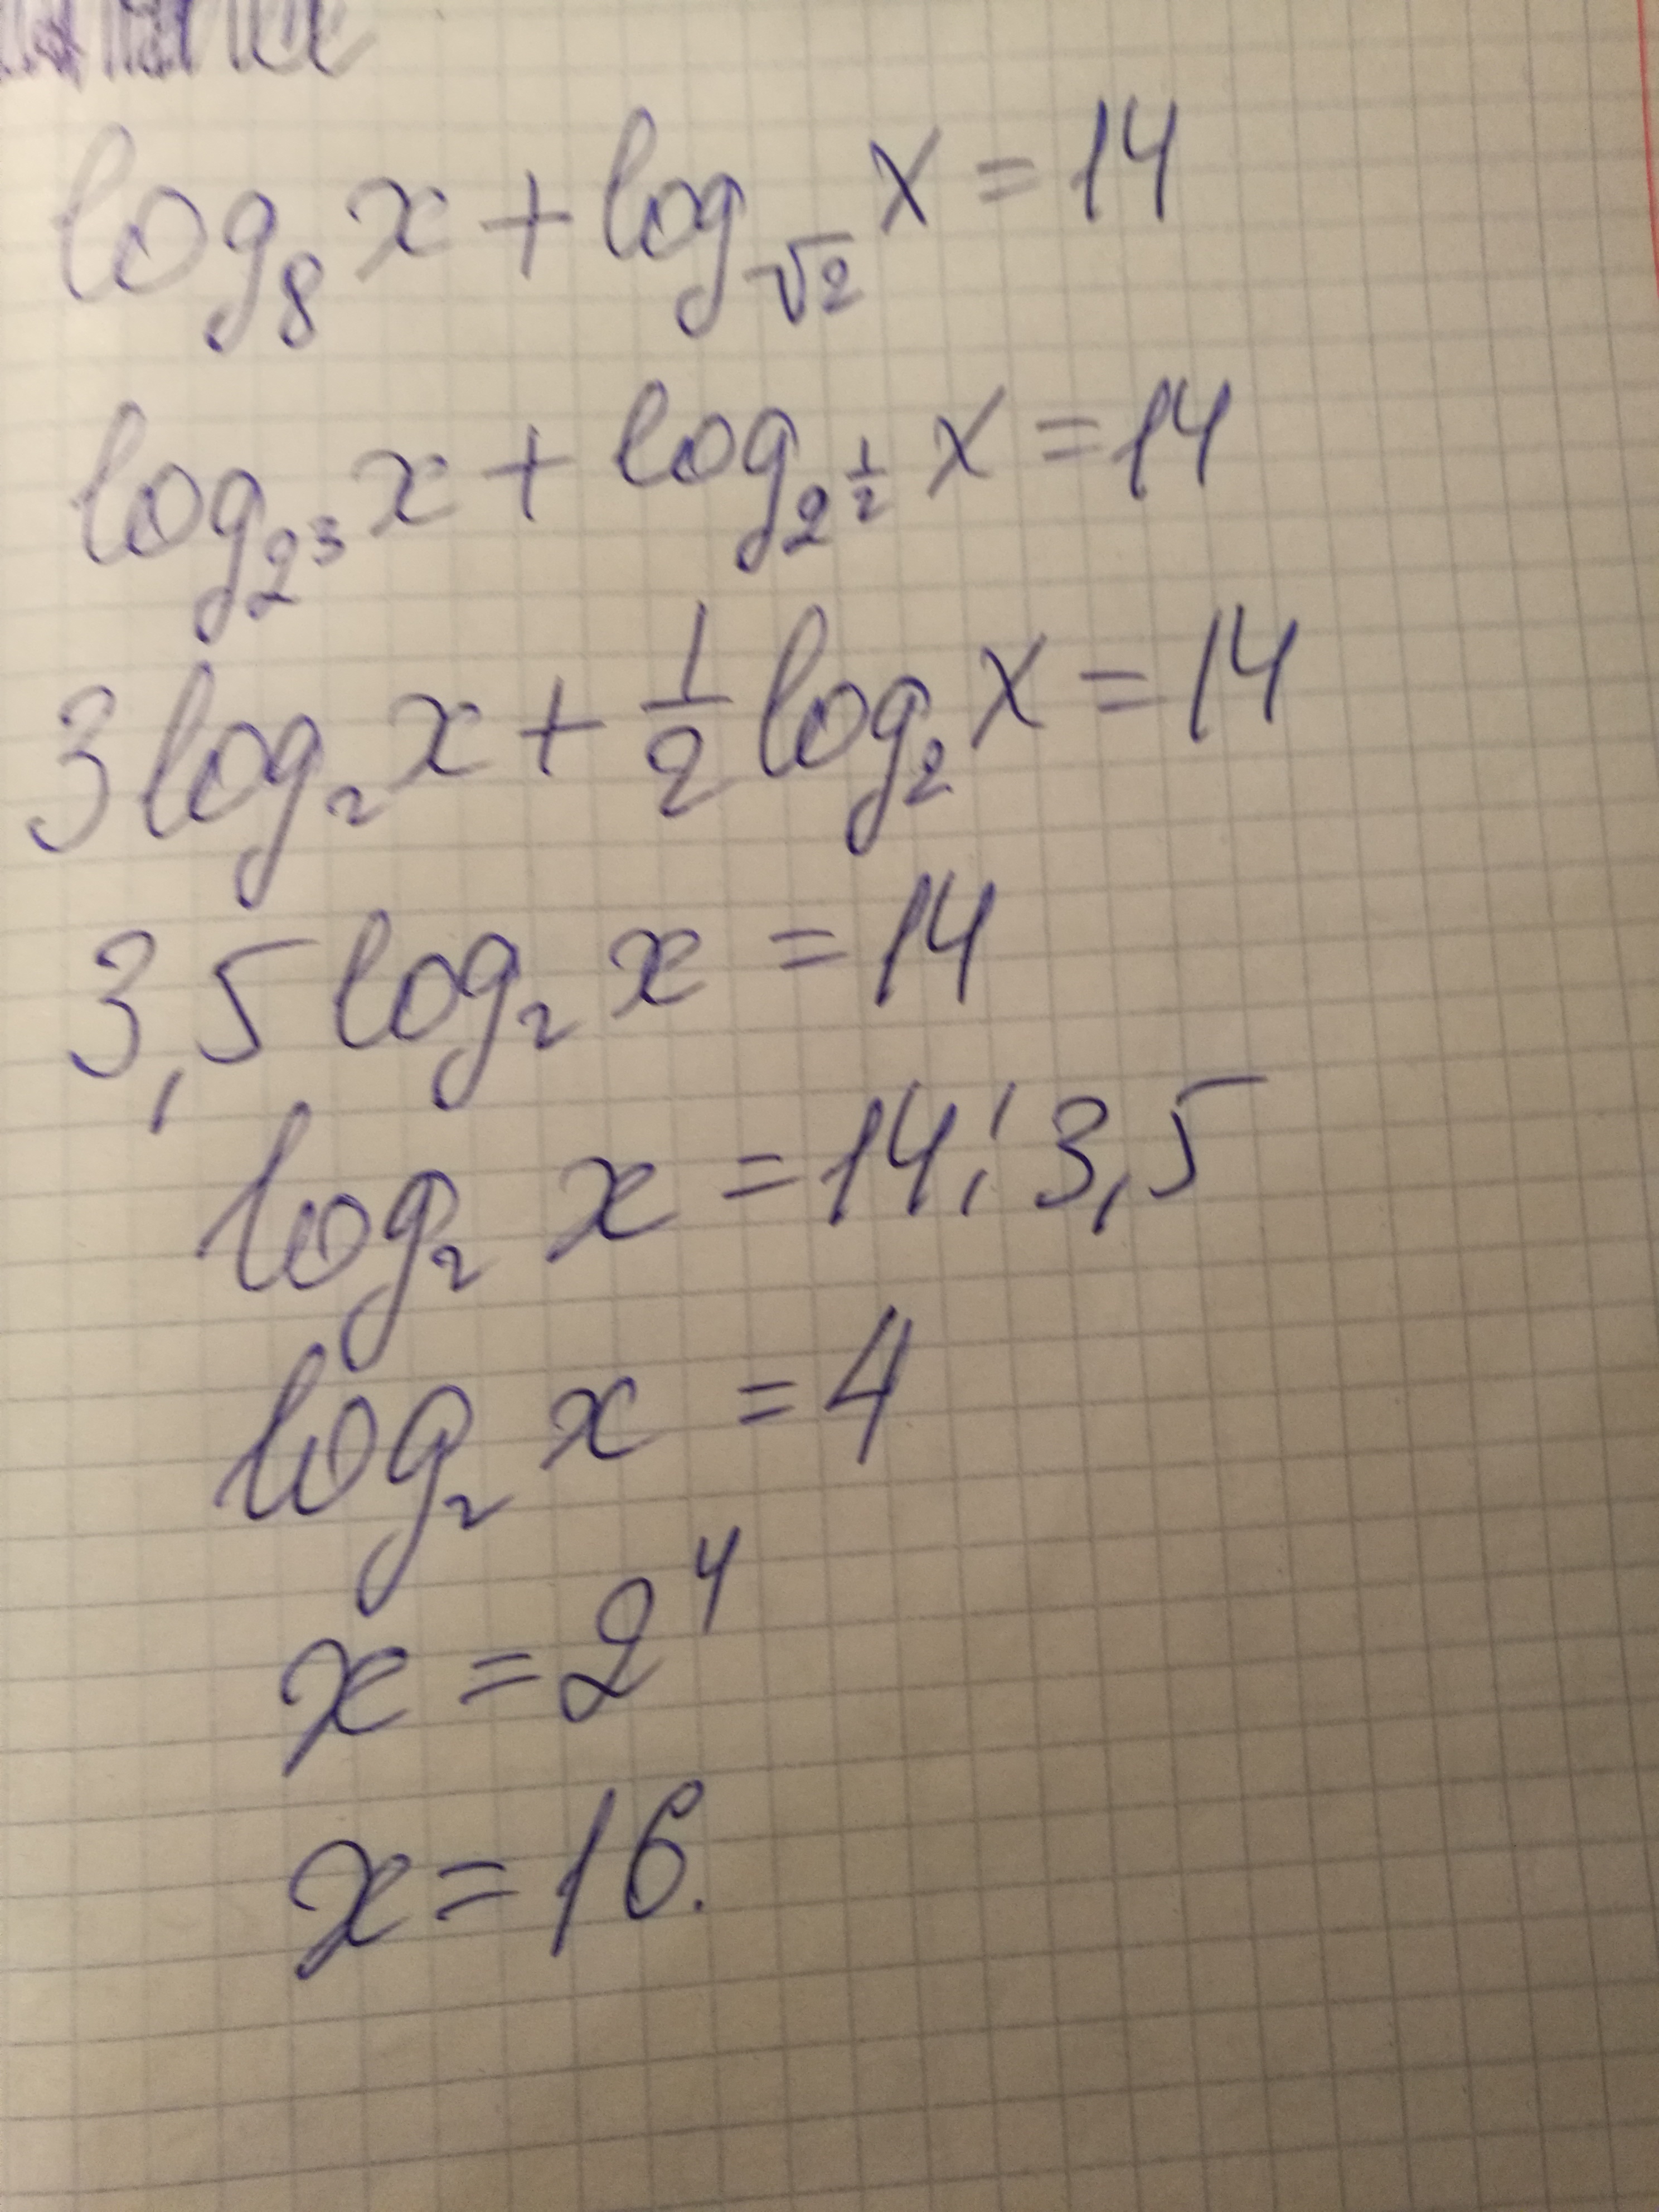 log₈ x + log_√2 x = 14
log_2³ x + log_2^½ x = 14
3 log₂ x + ½ log₂ x = 14
3,5 log₂ x = 14
log₂ x = 14 : 3,5
log₂ x = 4
x = 2⁴
x = 16.